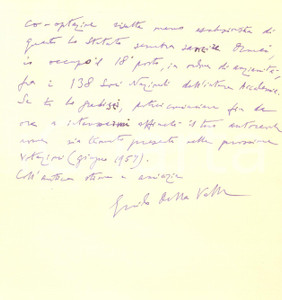 co-optazione molto meno
quanto lo Statuto sembra Ormai,
io occupo il 18° posto, in ordine di anzianità,
fra i 138 Soci Nazionali dell'intera Accademia.
Se tu lo gradisci, potrei cominciare fin da
ora a affinché il tuo autorevole
nome sia tenuto presente nelle prossime
votazioni (giugno 1957).
Coll'antica stima e amicizia
Guido Della Valle